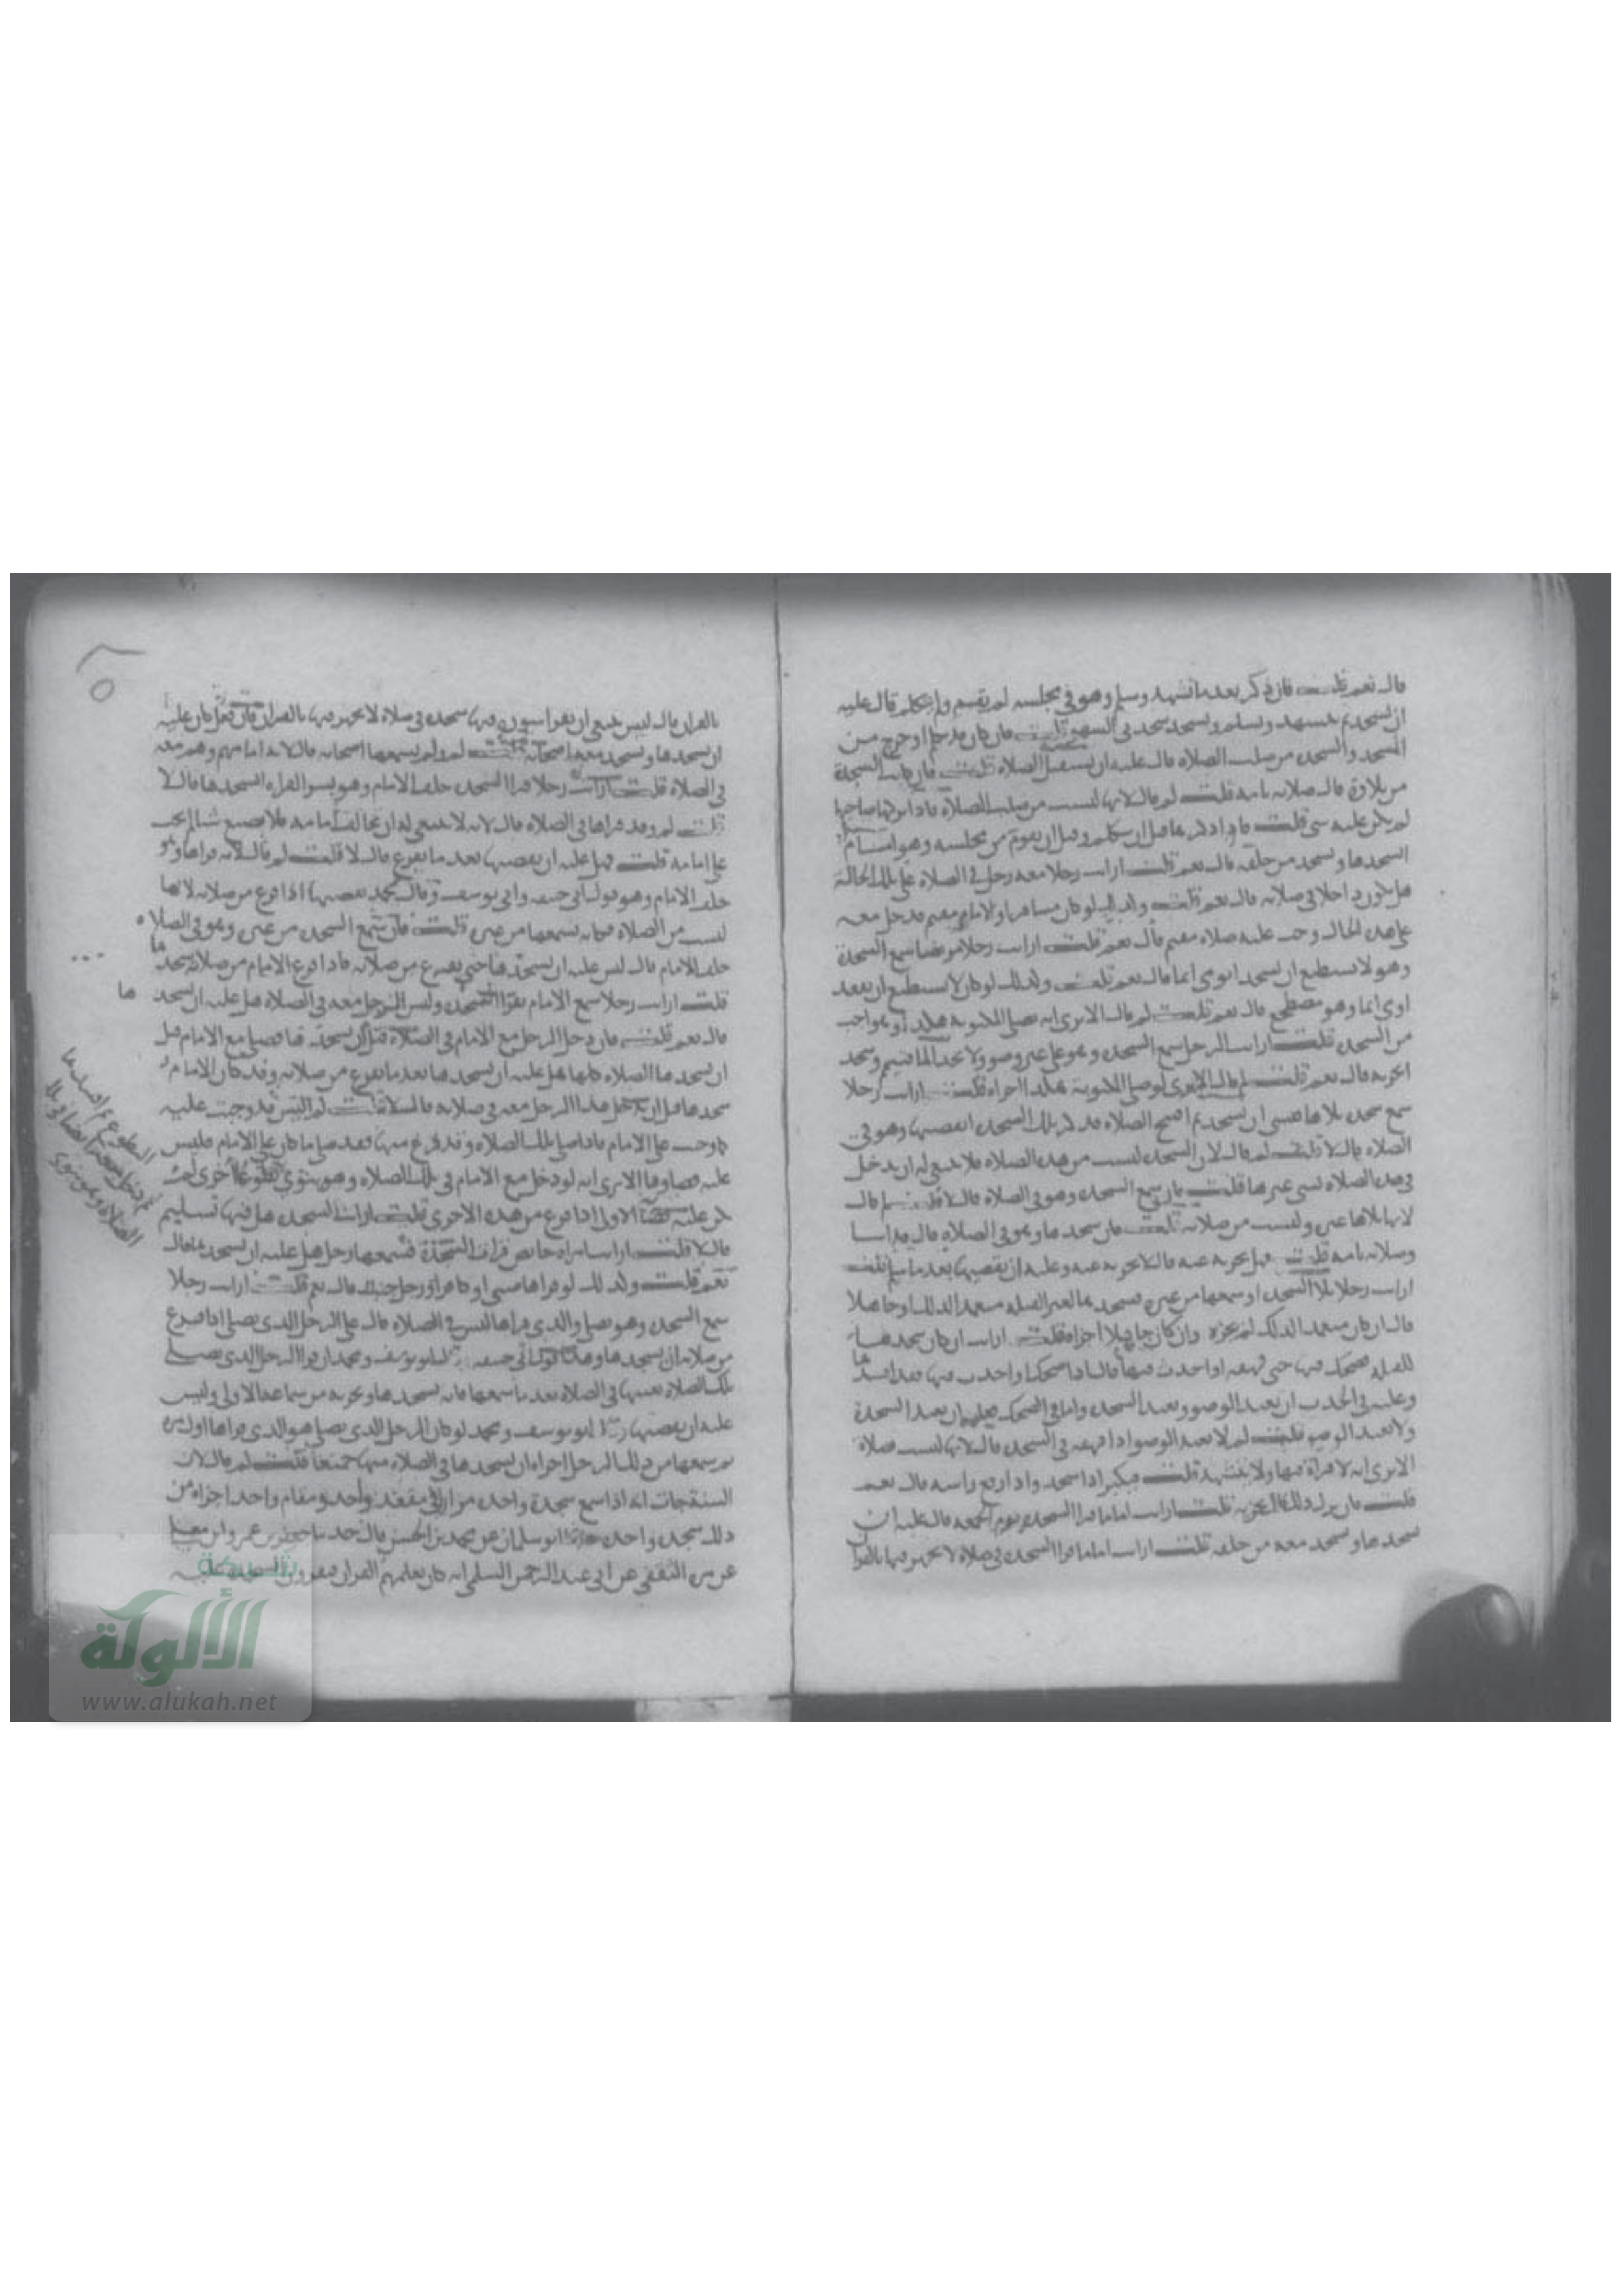 قال نعم قلت فان ذكر بعد ما تشهد وسلم وهو في مجلسه لم يقم ولم يتكلم قال عليه
ان يسجد ثم يتشهد ويسلم ويسجد سجدتي السهو قلت فان كان قد تكلم او خرج من
المسجد والسجدة من صلب الصلاة قال عليه ان يستقبل الصلاة قلت فان كانت السجدة
من تلاوة قال صلاته تامة قلت لم قال لانها ليست من صلب الصلاة فاذا تركها صاحبها
لم يكن عليه شي قلت فان ذكرها قبل ان يتكلم وقبل ان يقوم من مجلسه وهو امام
ايسجدها ويسجد من خلفه قال نعم قلت ارايت رجلا معه رجل في الصلاة على تلك الحالة
هل يكون داخلا في صلاته قال نعم قلت وكذلك لو كان مسافرا والامام مقيم فدخل معه
على هذه الحال وجب عليه صلاة مقيم قال نعم قلت ارايت رجلا مريضا سمع السجدة
وهو لا يستطيع ان يسجد ايومي ايما قال نعم قلت وكذلك لو كان لا يستطيع ان يقعد
اومي ايما وهو مضطجع قال نعم قلت لم قال الا ترى انه يصلي المكتوبة هكذا
من السجدة قلت ارايت الرجل سمع السجدة وهو على غير وضو ولا يجد الما فتيمم وسجد
ايجزيه قال نعم قلت لم قال الا ترى لو صلى المكتوبة هكذا اجزاه قلت ارايت رجلا
سمع سجدة تلاها فنسي ان يسجد ثم افتتح الصلاة فذكر تلك السجدة ايقضيها وهو في
الصلاة قال لا قلت لم قال لان السجدة ليست من هذه الصلاة فلا ينبغي له ان يدخل
في هذه الصلاة شي غيرها قلت فان سمع السجدة وهو في الصلاة قال لا قلت لم قال
لانها تلاها غيره وليست من صلاته قلت فان سجدها وهو في الصلاة قال قد اسا
وصلاته تامة قلت فهل يجزيه عنه قال لا يجزيه عنه وعليه ان يقضيها بعد ما يسلم قلت
ارايت رجلا تلا السجدة او سمعها من غيره فسجد بها لغير القبلة متعمدا لذلك او جاهلا
قال ان كان متعمدا لذلك لم يجزه وان كان جاهلا اجزاه قلت ارايت ان كان سجدها
للقبلة فضحك فيها حتى قهقه او احدث فيها قال اذا ضحك او احدث فيها فقد افسدها
وعليه في الحدث ان يعيد الوضو ويعيد السجدة واما في الضحك فعليه ان يعيد السجدة
ولا يعيد الوضو قلت لم لا يعيد الوضو اذا قهقه في السجدة قال لانها ليست صلاة
الا ترى انه لا قراة فيها ولا تشهد قلت فيكبر اذا سجد واذا رفع راسه قال نعم
قلت فان ترك ذلك قال يجزيه قلت ارايت اماما قرا السجدة يوم الجمعة قال عليه ان
يسجدها ويسجد معه من خلفه قلت ارايت اماما قرا السجدة في صلاة لا يجهر فيها بالقران
بالقران قال ليس ينبغي ان يقرا سورة فيها سجدة في صلاة لا يجهر فيها بالقران فان فعل كان عليه
ان يسجدها ويسجد معه اصحابه قلت لم ولم يسمعها اصحابه قال لانه امامهم وهم معه
في الصلاة قلت ارايت رجلا قرا السجدة خلف الامام وهو يسر القراه ايسجدها قال لا
قلت لم وقد قراها في الصلاة قال لانه لا ينبغي له ان يخالف امامه فلا يصنع شيا لم يجب
على امامه قلت فهل عليه ان يقضيها بعد ما يفرغ قال لا قلت لم قال لانه قراها وهو
خلف الامام وهو قول ابي حنيفة وابي يوسف وقال محمد يقضيها اذا فرغ من صلاته لانها
ليست من الصلاة فكانه سمعها من غيره قلت فان سمع السجدة من غيره وهو في الصلاة
خلف الامام قال ليس عليه ان يسجدها حتى يفرغ من صلاته فاذا فرغ الامام من صلاته سجدها
قلت ارايت رجلا سمع الامام يقرا السجدة وليس الرجل معه في الصلاة هل عليه ان يسجدها
قال نعم قلت فان دخل الرجل مع الامام في الصلاة قبل ان يسجدها فصلى مع الامام قبل
ان يسجدها الصلاة كلها هل عليه ان يسجدها بعد ما يفرغ من صلاته وقد كان الامام
سجدها قبل ان يدخل هذا الرجل معه في صلاته قال لا قلت لم اليس قد وجبت عليه
كما وجبت على الامام قال اذا صلى تلك الصلاة وقد فرغ منها فقد صلى ما كان على الامام فليس
عليه قضاوها الا ترى انه لو دخل مع الامام في تلك الصلاة وهو ينوي تطوعا اخرى لم
يكن عليه قضا الاولى اذا فرغ من هذه الاخرى قلت ارايت السجدة هل فيها تسليم
قال لا قلت ارايت امراة حايض قرات السجدة فسمعها رجل هل عليه ان يسجدها قال
نعم قلت وكذلك لو قراها صبي او كافر او رجل جنب قال نعم قلت ارايت رجلا
سمع السجدة وهو يصلي والذي قراها ليس في الصلاة قال على الرجل الذي يصلي اذا فرغ
من صلاته ان يسجدها وهذا قول ابي حنيفة وابو يوسف ومحمد ان قرا الرجل الذي يصلي
تلك الصلاة بعينها في الصلاة بعد ما سمعها فانه يسجدها ويجزيه من سماعه الاولى وليس
عليه ان يقضيها قال ابو يوسف ومحمد لو كان الرجل الذي يصلي هو الذي قراها اول من
ثم سمعها من ذلك الرجل اجزاه ان يسجدها في الصلاة منها جميعا قلت لم قال لان
السنة جات انه اذا سمع سجدة واحدة مرارا في مقعد واحد ومقام واحد اجزاه من
ذلك سجدة واحدة حدثنا ابو سليمان عن محمد بن الحسن قال حدثنا جعفر بن عمر
عن الثقفي عن ابي عبد الرحمن السلمي انه كان يعلمهم القران
التطوع ثم افسدها
ثم دخل معه
الصلاة وهو ينوي
شبكة
الألوكة
www.alukah.net